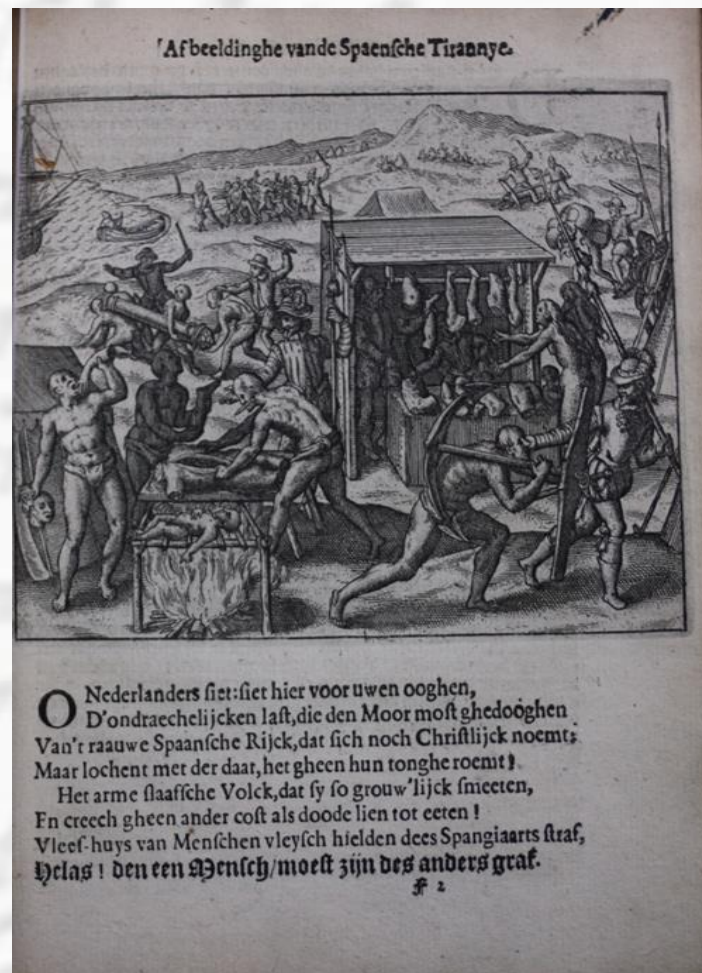 Afbeeldinghe vande Spaensche Tirannye.
O Nederlanders siet: siet hier voor uwen ooghen,
D'ondraechelijcken last, die den Moor most ghedooghen
Van't raauwe Spaansche Rijck, dat sich noch Christlijck noemt;
Maar lochent met der daat, het gheen hun tonghe roemt!
Het arme slaafsche Volck, dat sy so grouw'lijck smeeten,
En creech gheen ander cost als doode lien tot eeten!
Vleef-huys van Menschen vleysch hielden dees Spangiaarts straf,
Helas! den een Mensch/moest zijn des anders graf.
f 2